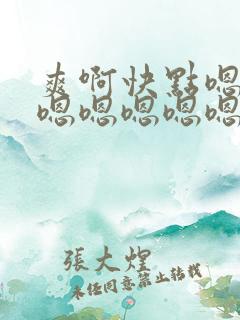 爽啊快點嗯
嗯嗯嗯嗯嗯
張大煌
未經同意禁止轉載